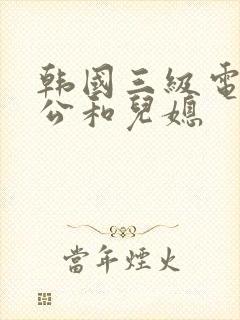 韩國三級電
公和兒媳
當年煙火